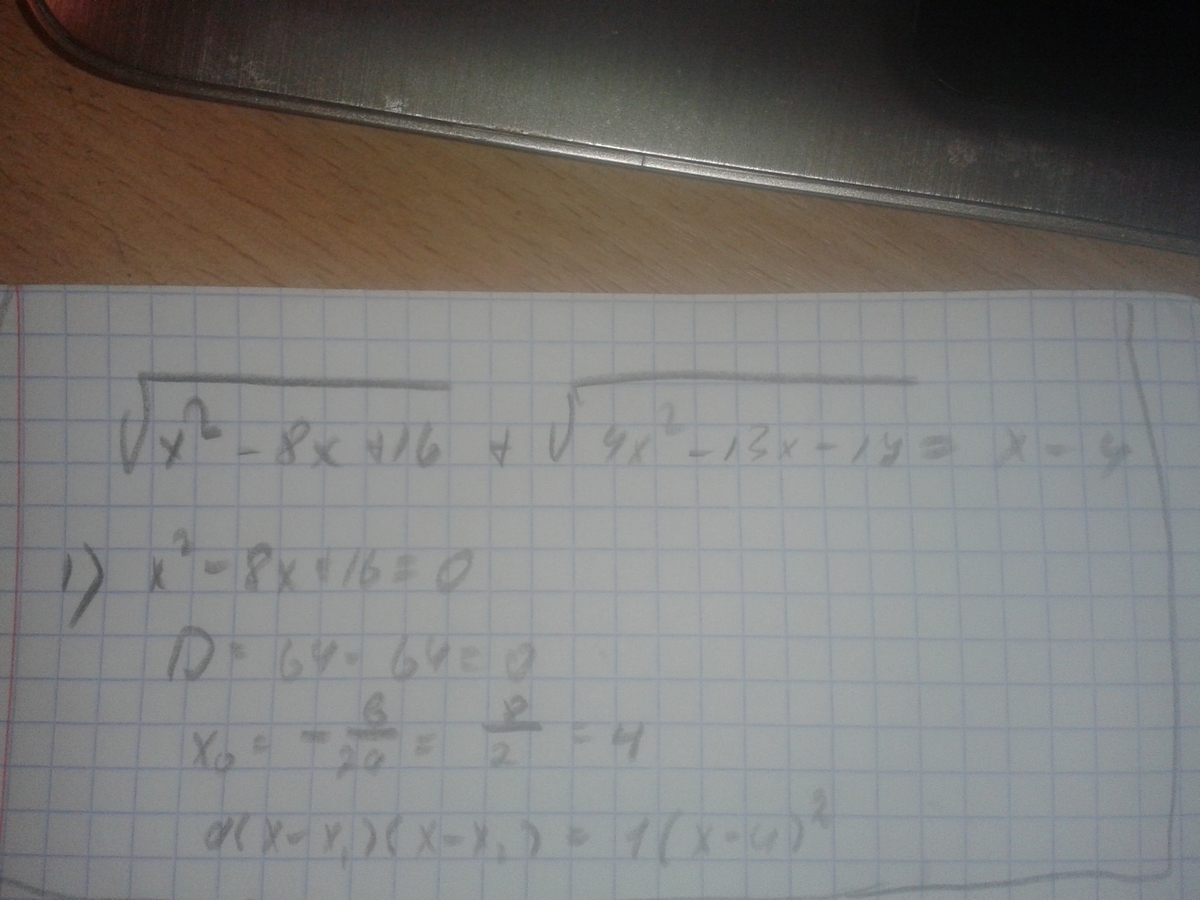 √(x² - 8x + 16) + √(4x² - 13x - 17) = x - 4
1) x² - 8x + 16 = 0
D = 64 - 64 = 0
x₀ = - в/2a = 8/2 = 4
a(x - x₁)(x - x₁) = 1(x - 4)²